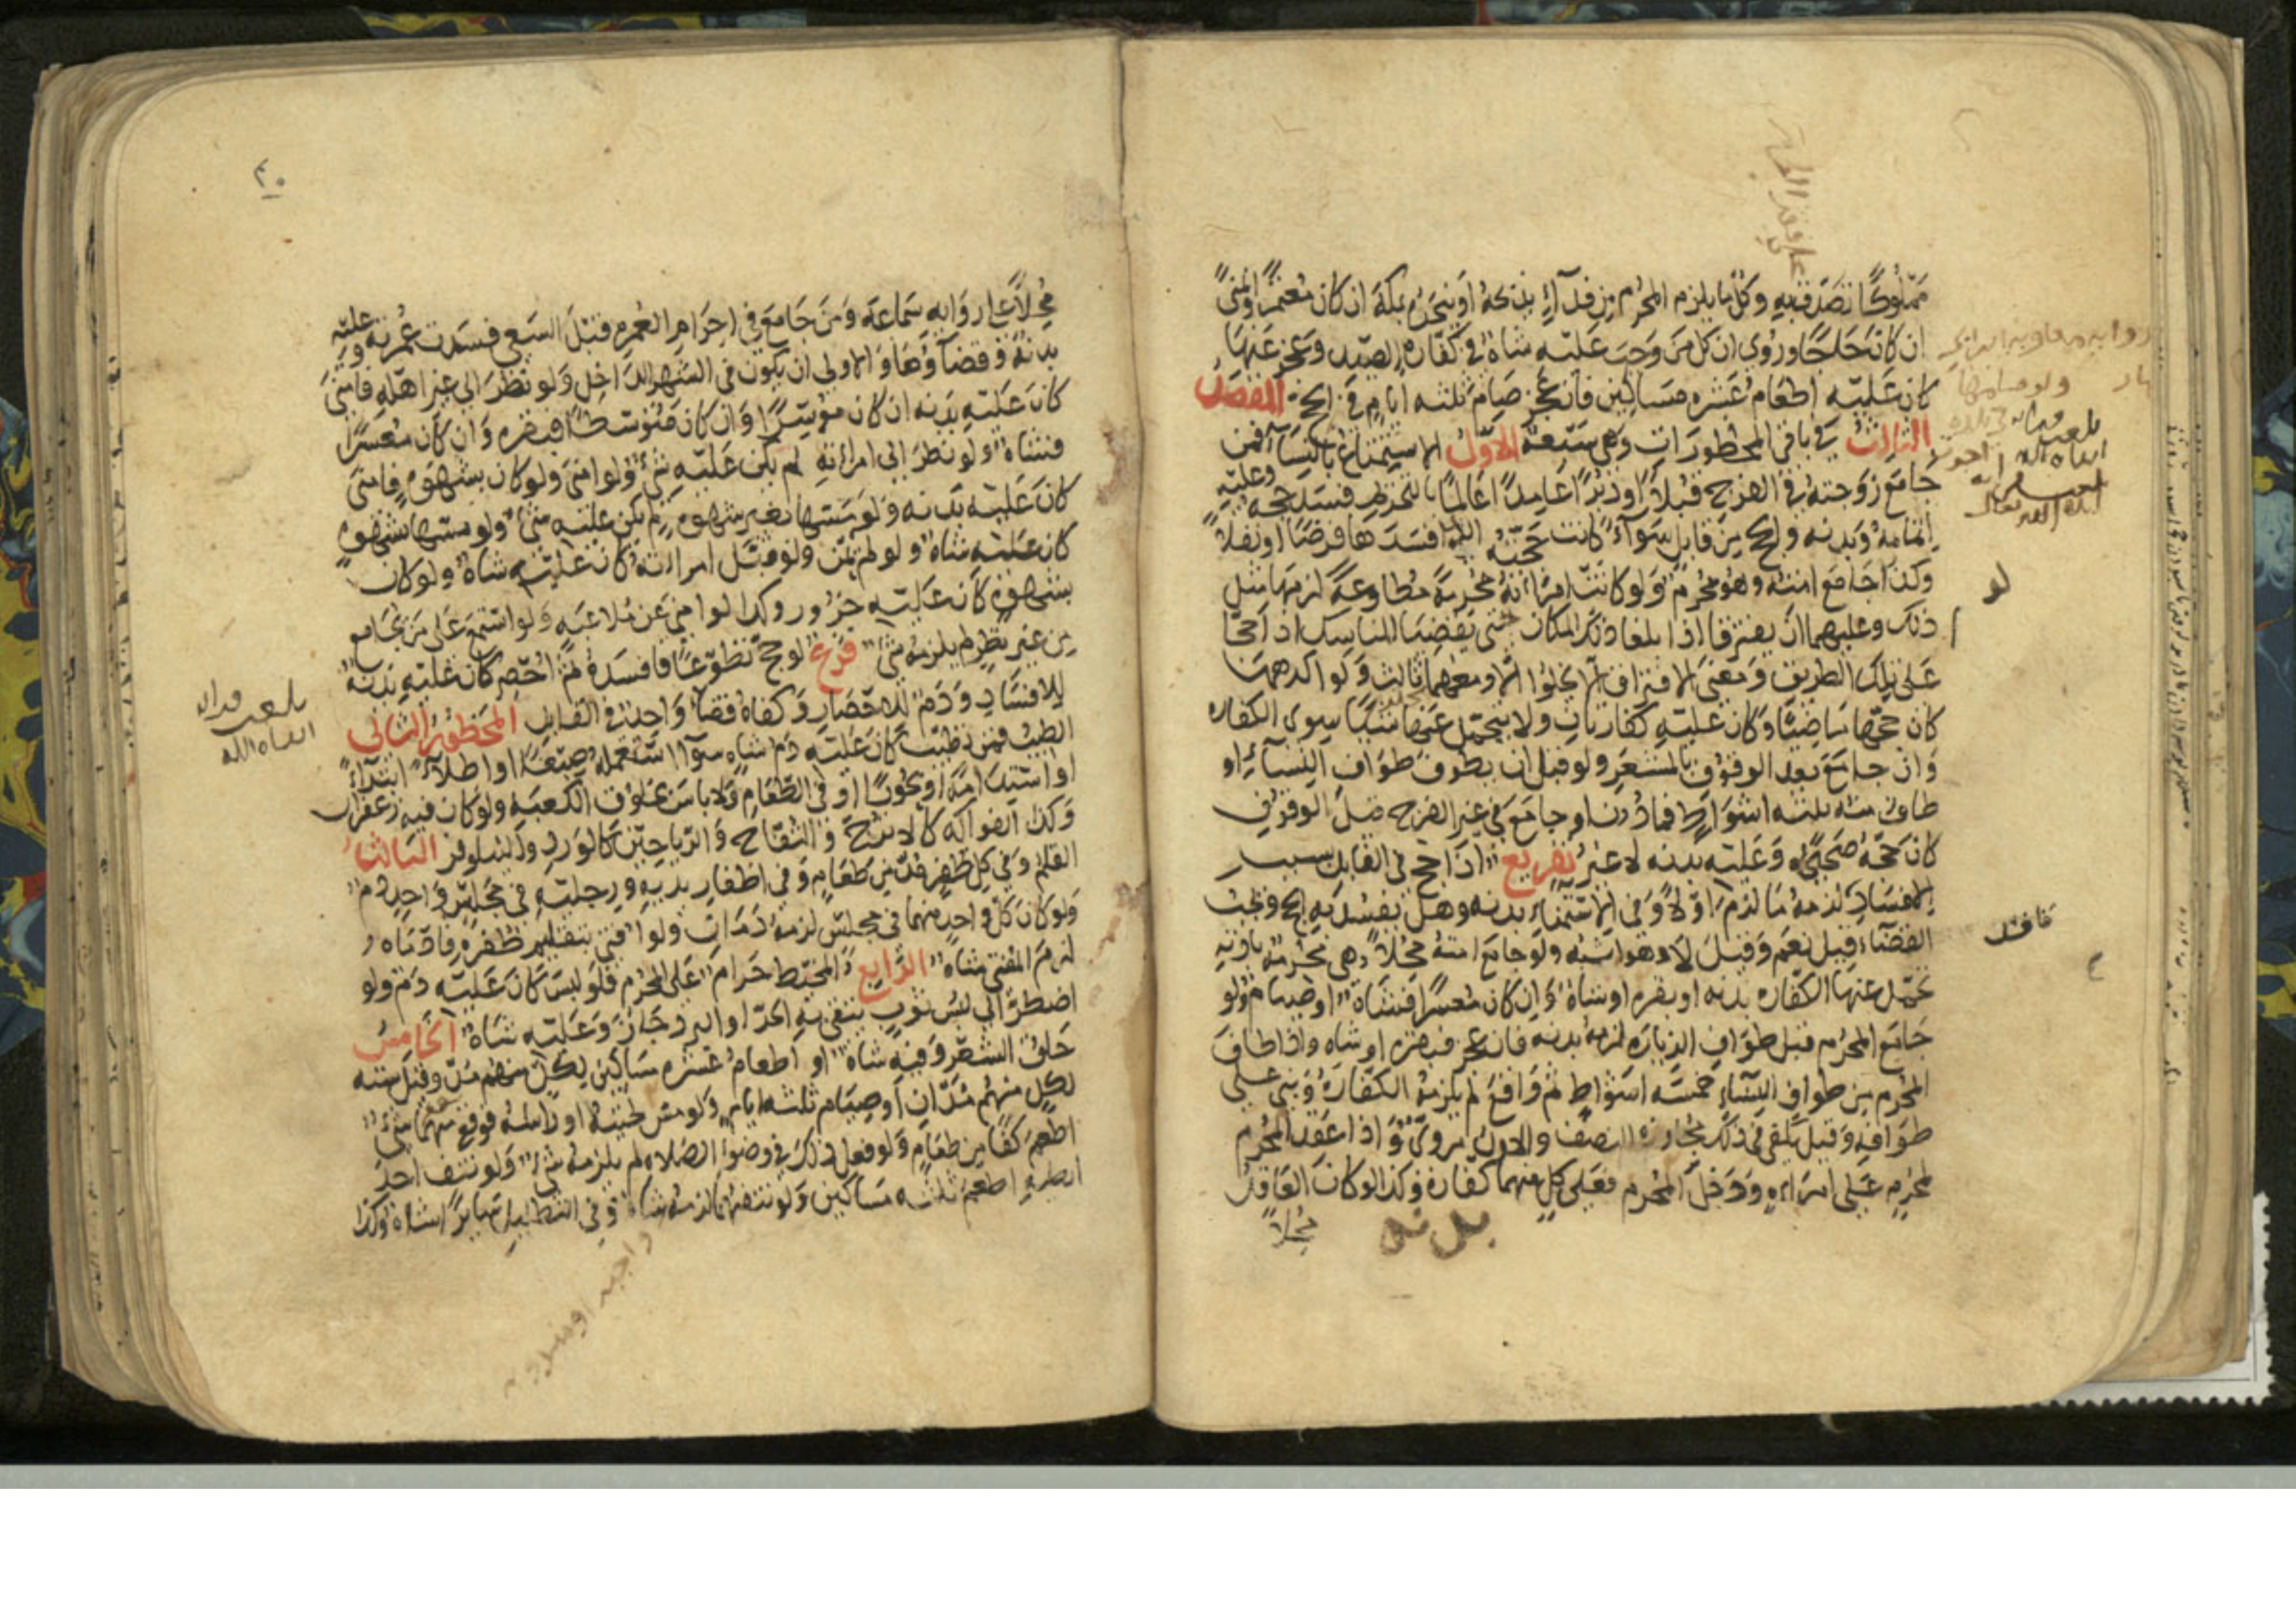 مملوكا تصدق به وكل ما يلزم المحرم من فدآء يذبحه او ينحره بمكة ان كان معتمرا وبمنى
ان كان حاجا وروي ان كل من وجب عليه شاة في كفارة الصيد وعجز عنها
كان عليه اطعام عشره مساكين فان عجز صام ثلثه ايام في الحج الفصل
الثالث في باقي المحظورات وهي سبعة الاول الاستمتاع بالنسآء فمن
جامع زوجته في الفرج قبلا او دبرا عامدا عالما بالتحريم فسد حجه وعليه
اتمامه وبدنه والحج من قابل سوآء كانت حجته التي افسدها فرضا او نفلا
وكذا لو جامع امته وهو محرم ولو كانت امراته محرمة مطاوعة لزمها مثل
ذلك وعليهما ان يفترقا اذا بلغا ذلك المكان حتى يقضيا المناسك اذا حجا
على تلك الطريق ومعنى الافتراق الا يخلوا الا ومعهما ثالث ولو اكرهها
كان حجها ماضيا وكان عليه كفارتان ولا يتحمل عنها شيئا سوى الكفاره
وان جامع بعد الوقوف بالمشعر ولو قبل ان يطوف طواف النسآء او
طاف منه ثلثه اشواط فما دون او جامع في غير الفرج قبل الوقوف
كان حجه صحيحا وعليه بدنه لا غير تفريع اذا حج في القابل بسبب
الافساد لزمه ما لزم اولا وفي الاستمناء بدنه وهل يفسد به الحج ويجب
القضاء قيل نعم وقيل لا وهو اشبه ولو جامع امته محلا وهي محرمة باذنه
تحمل عنها الكفاره بدنه او بقره او شاة وان كان معسرا فشاة او صيام ولو
جامع المحرم قبل طواف الزيارة لزمه بدنه فان عجز فبقره او شاه واذا طاف
المحرم من طواف النسآء خمسه اشواط ثم واقع لم يلزمه الكفارة وبنى على
طوافه وقيل يكفي في ذلك مجاوزة النصف والاول مروي واذا عقد المحرم
لمحرم على امراه ودخل المحرم فعلى كل منهما كفارة وكذا لو كان العاقد
محلا
محلا على روايه سماعة ومن جامع في احرام العمره قبل السعي فسدت عمرته وعليه
بدنة وقضآؤها والاولى ان يكون في الشهر الداخل ولو نظر الى غير اهله فامنى
كان عليه بدنه ان كان موسرا وان كان متوسطا فبقره وان كان معسرا
فشاة ولو نظر الى امراته لم يكن عليه شئ ولو امنى ولو كان بشهوه فامنى
كان عليه بدنه ولو مسها بغير شهوه لم يكن عليه شئ ولو مسها بشهوه
كان عليه شاة ولو لم يمن ولو قبل امراته كان عليه شاة ولو كان
بشهوة كان عليه جزور وكذا لو امنى عن ملاعبه ولو استمع على من يجامع
من غير نظر لم يلزمه شئ فرع لو حج تطوعا فافسده ثم احصر كان عليه بدنه
للافساد ودم للاحصار وكفاه قضآ واحد في القابل المحظور الثاني
الطيب فمن تطيب كان عليه دم شاه سوآ استعمله صبغا او اطلآء ابتدآء
او استدامة او بخورا او في الطعام ولا باس بخلوق الكعبه ولو كان فيه زعفران
وكذا الفواكه كالاترج والتفاح والرياحين كالورد والنيلوفر الثالث
القلم وفي كل ظفر مد من طعام وفي اظفار يديه ورجليه في مجلس واحد دم
ولو كان كل واحد منهما في مجلس لزمه دمان ولو افتى بتقليم ظفره فادماه
لزم المفتي شاه الرابع المخيط حرام على المحرم فلو لبس كان عليه دم ولو
اضطر الى لبس ثوب يتقي به الحر او البرد جاز وعليه شاة الخامس
حلق الشعر وفيه شاة او اطعام عشره مساكين لكل منهم مد وقيل سته
لكل منهم مدان او صيام ثلثه ايام ولو مس لحيته او راسه فوقع منهما شئ
اطعم كفا من طعام ولو فعل ذلك في وضوء الصلاه لم يلزمه شئ ولو نتف احد
ابطيه اطعم ثلثه مساكين ولو نتفهما لزمه شاة وفي التظليل سايرا شاة وكذا